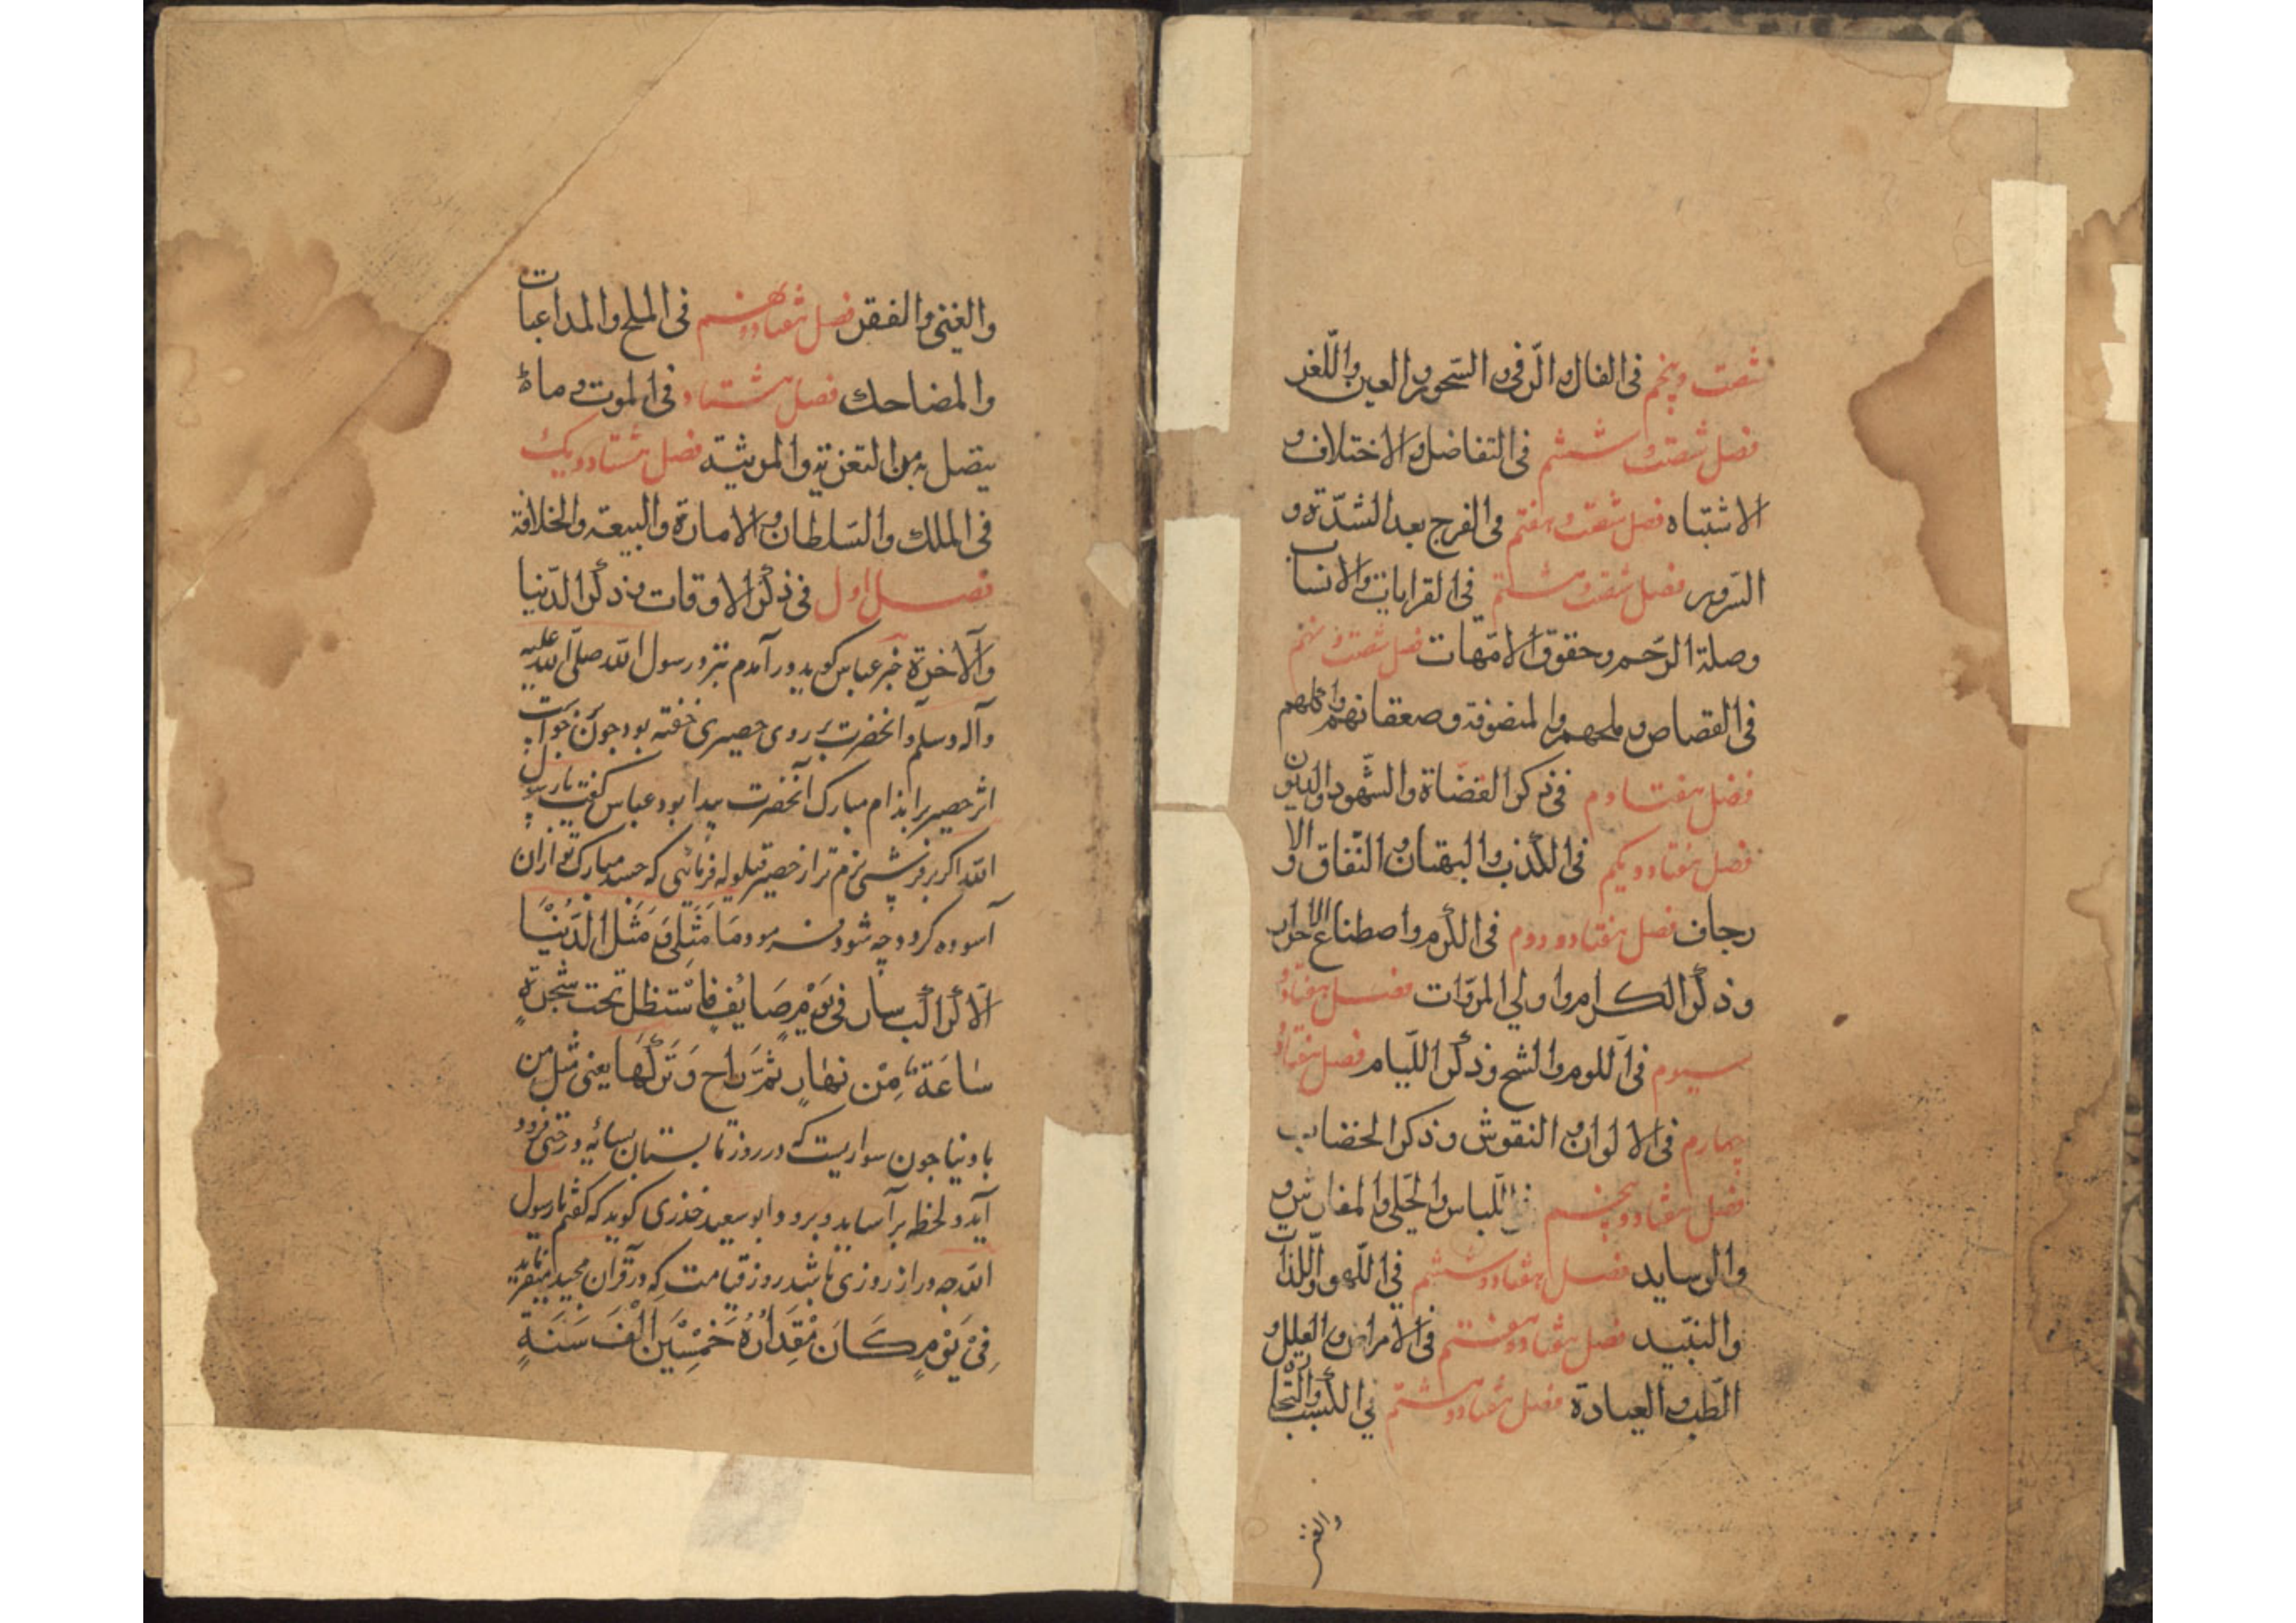 شصت و پنجم فی الفال و الرقی و السحر و العین و اللغز
فصل شصت و ششم فی التفاضل و الاختلاف و
الاشتباه فصل شصت و هفتم فی الفرج بعد الشدّة و
السرور فصل شصت و هشتم فی القرابات و الانساب
وصلة الرّحم و حقوق الامّهات فصل شصت و نهم
فی القصاص و ملحهم و المتصوفة و صعقاتهم و اکلهم
فصل هفتادم فی ذکر القضاة و الشّهود و الدیون
فصل هفتاد و یکم فی الکذب و البهتان و النّفاق و الا
رجاف فصل هفتاد و دوم فی الکرم و اصطناع الاحرار
و ذکر الکرام و اولی المروّات فصل هفتاد و
سیوم فی اللوم و الشح و ذکر اللّیام فصل هفتاد و
چهارم فی الالوان و النقوش و ذکر الخضاب
فصل هفتاد و پنجم فی اللّباس و الحلی و المفارش و
والوساید فصل هفتاد و ششم فی اللّهو و اللّذات
والنبّید فصل هفتاد و هفتم فی الامراض و العلل و
الطّب و العیادة فصل هفتاد و هشتم فی الکسب و التجارة
والغنی و الفقر فصل هفتاد و نهم فی الملح و المداعبات
والمضاحك فصل هشتاد فی الموت و ما
یتصل به من التعزیة و المرثیة فصل هشتاد و یک
فی الملك و السّلطان و الامارة و البیعة و الخلافة
فصل اول فی ذکر الاوقات و ذکر الدّنیا
و الآخرة خبر عباس کوید در آمدم بنزد رسول الله صلی الله علیه
و آله و سلم و آنحضرت بر روی حصیری خفته بود جون
اثر حصیر بر اندام مبارک آنحضرت پیدا بود عباس کفت یا رسول
الله اکر بر فرشی نرم تر از حصیر قیلوله فرمائی که جسد مبارک تو ازان
آسوده کردد چه شود فرمود مَا مَثَلِی وَ مَثَل الدُنْیَا
الّا کراکب سار فی یَوْمٍ صَایُفٍ فاسْتَظل تحت شجرةٍ
سَاعَةً مِنْ نهَارٍ ثمَّ رَاح وَتَرکَهَا یعنی مثل من
با دنیا جون سواریست که در روز تابستان بسایه درختی فرود
آید و لحظه برآساید و برود و ابو سعید خذری کوید که کفتم یا رسول
الله چه دراز روزی باشد روز قیامت که در قرآن مجید میفرماید
فِیْ یَوْمٍ کَانَ مْقِدَارُهُ خَمْسِیْنَ الْفَ سَنَةٍ